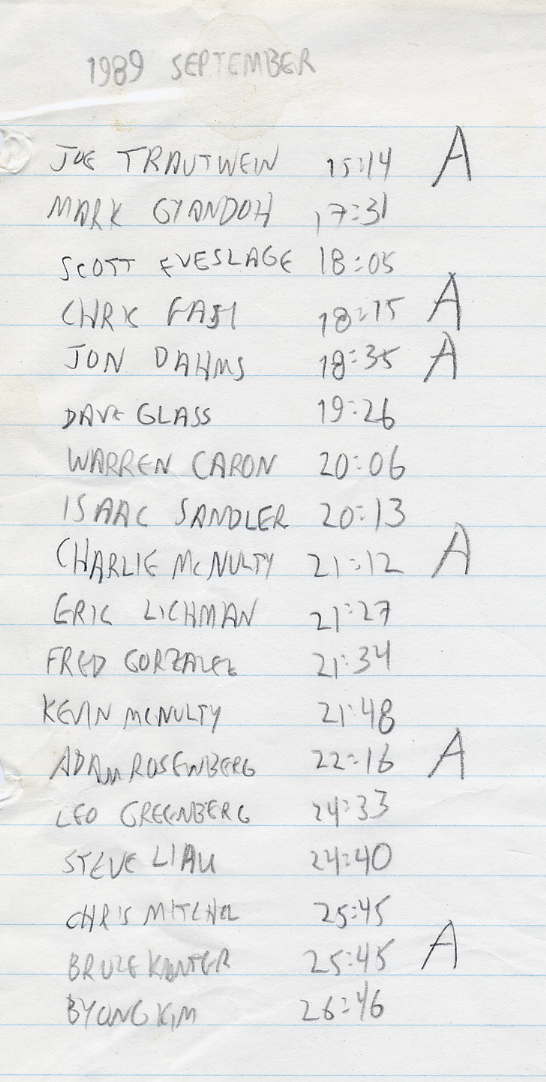 1989 SEPTEMBER
JOE TRAUTWEIN 15:14 A
MARK GYANDOH 17:31
SCOTT EVESLAGE 18:05
CHRK FASH 18:15 A
JON DAHMS 18:35 A
DAVE GLASS 19:26
WARREN CARON 20:06
ISAAC SANDLER 20:13
CHARLIE McNULTY 21:12 A
ERIC LICHMAN 21:27
FRED GORZALEZ 21:34
KEVIN MCNULTY 21:48
ADAM ROSENBERG 22:16 A
LEO GREENBERG 24:33
STEVE LIAU 24:40
CHRIS MITCHEL 25:45
BRUCE KANTER 25:45 A
BYONG KIM 26:46